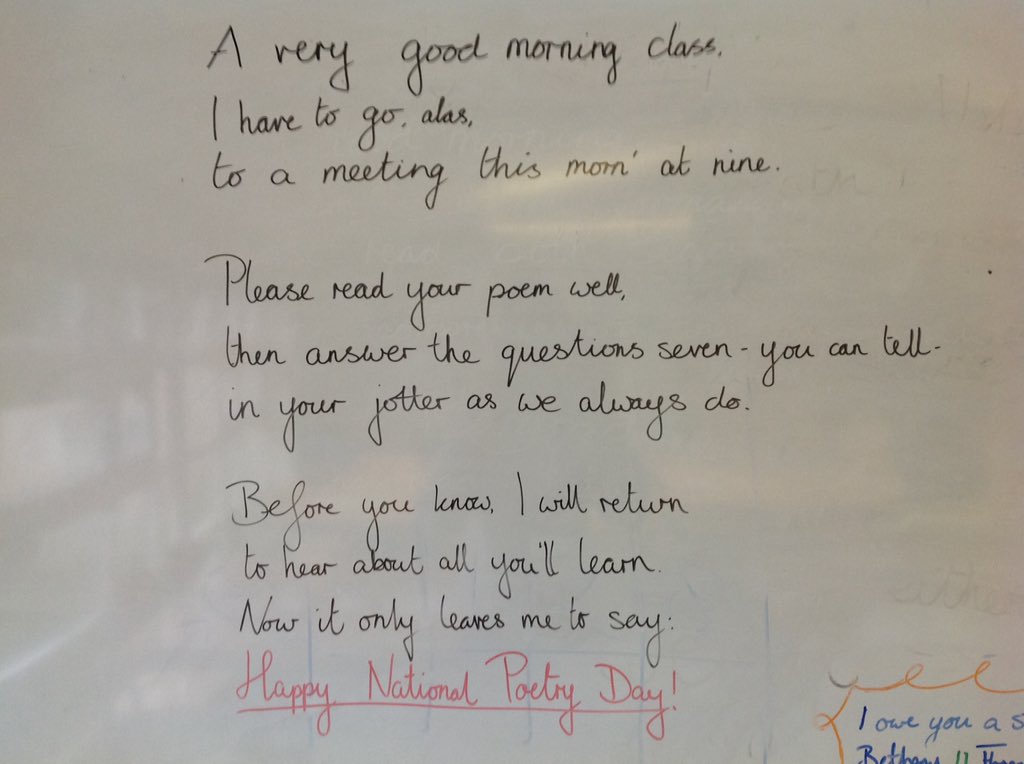 A very good morning class.
I have to go, alas,
to a meeting this morn' at nine.
Please read your poem well,
then answer the questions seven - you can tell -
in your jotter as we always do.
Before you know, I will return
to hear about all you'll learn.
Now it only leaves me to say:
Happy National Poetry Day!
I owe you a
Bethany 11